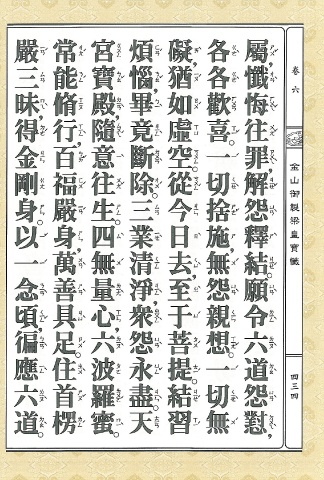 卷六
金山御製梁皇寶懺
四三四
屬懺悔往罪，解怨釋結。願令六道怨懟，
各各歡喜。一切捨施，無怨親想。一切無
礙，猶如虛空。從今日去，至于菩提，結習
煩惱，畢竟斷除。三業清淨，眾怨永盡。天
宮寶殿，隨意往生。四無量心，六波羅蜜。
常能脩行，百福嚴身，萬善具足。住首楞
嚴三昧，得金剛身。以一念頃，徧應六道。